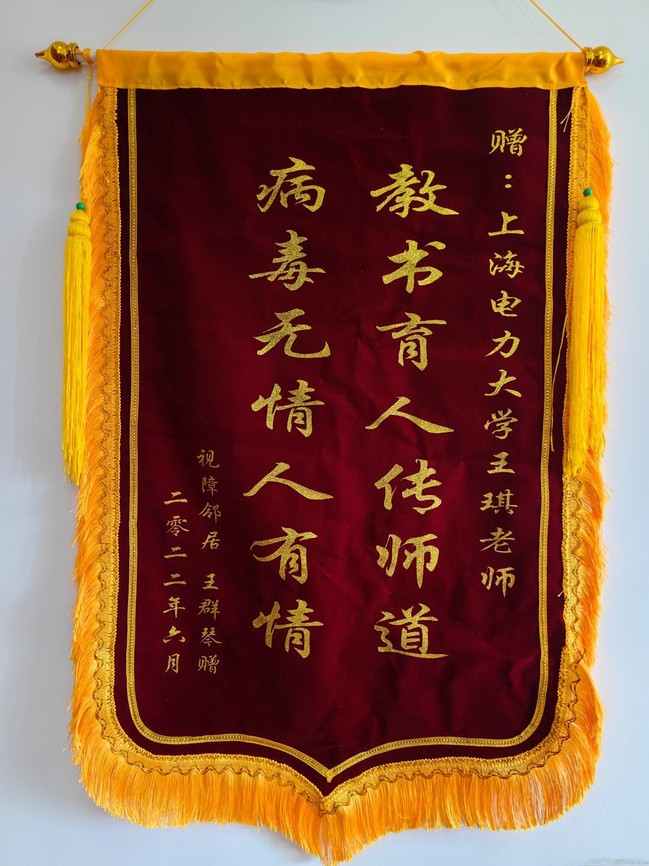 赠：上海电力大学王琪老师
教书育人传师道
病毒无情人有情
视障邻居 王群琴赠
二零二二年六月